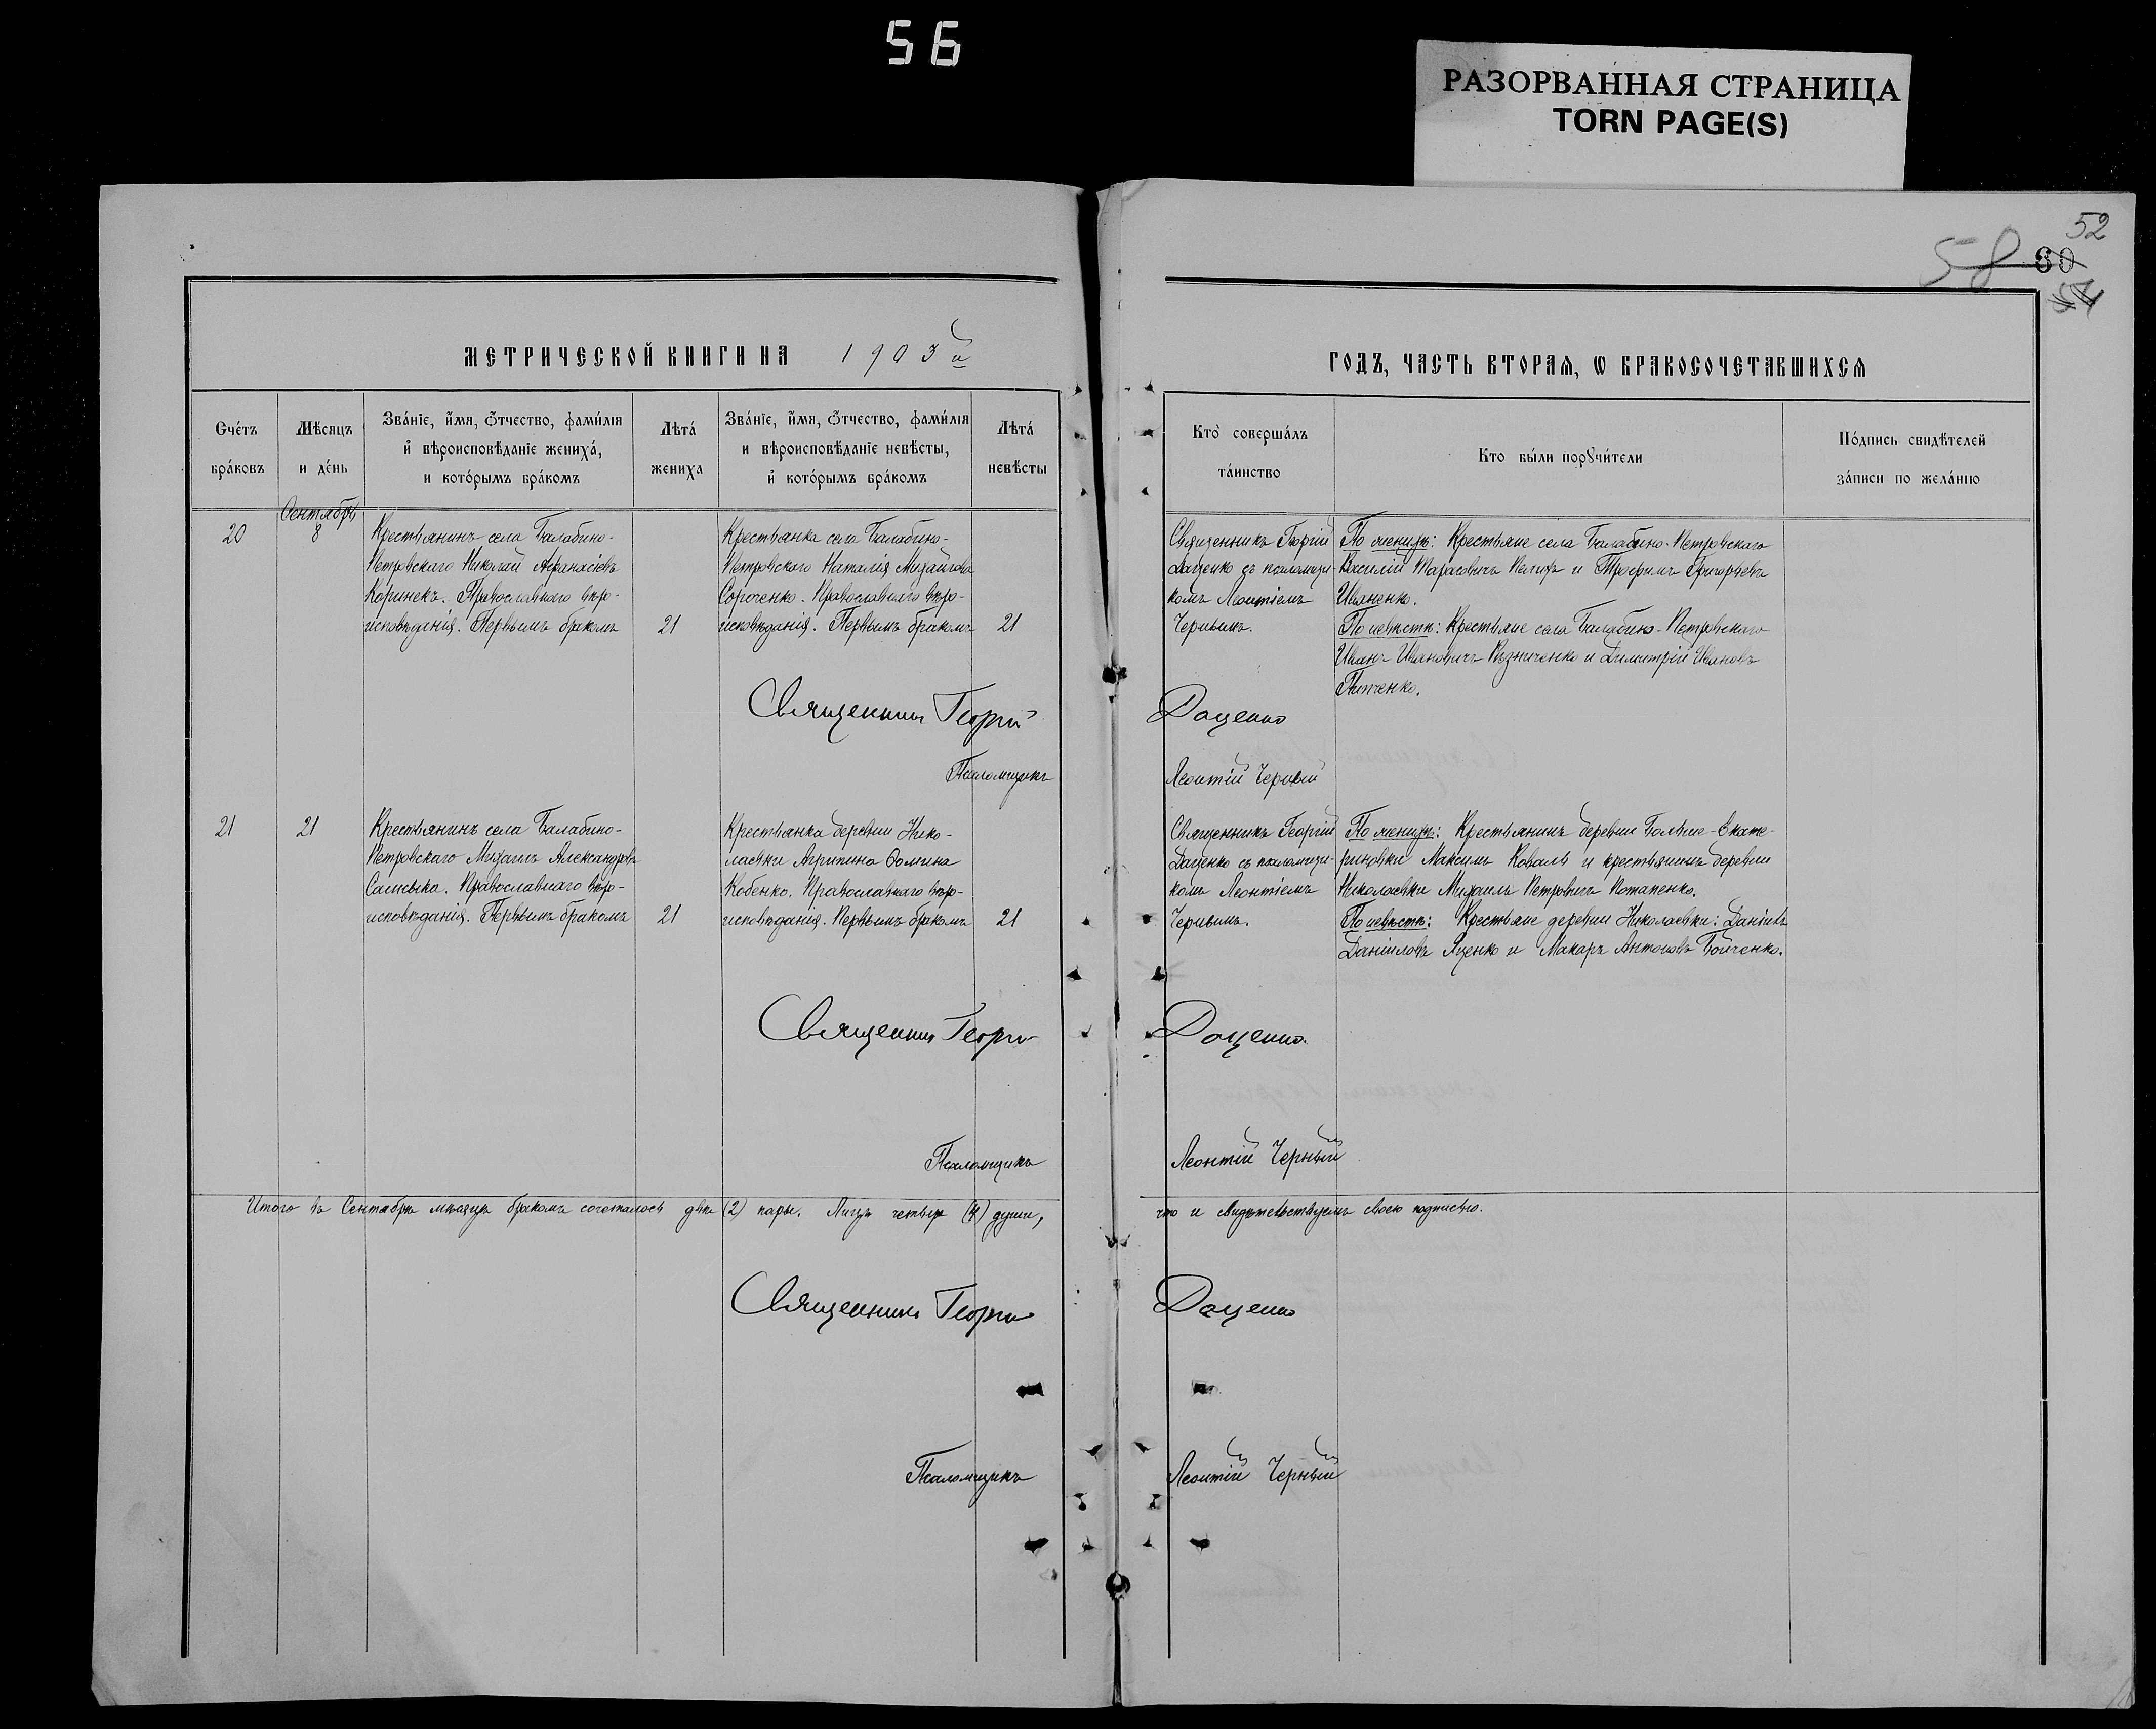 56
РАЗОРВАННАЯ СТРАНИЦА
TORN PAGE(S)
52
58 60
54
МЕТРИЧЕСКОЙ КНИГИ НА 1903й
ГОДЪ, ЧАСТЬ ВТОРАЯ, Ѡ БРАКОСОЧЕТАВШИХСЯ
Счётъ
бра́ковъ
Мѣсяцъ
и де́нь
Зва́нїе, и́мя, ѻ҆́тчество, фами́лїя
и҆ вѣроисповѣданїе жениха́,
и кото́рымъ бра́комъ
Лѣта́
жениха
Зва́нїе, и́мя, ѻ҆́тчество, фами́лїя
и вѣроисповѣданїе невѣсты,
и҆ кото́рымъ бра́комъ
Лѣта́
невѣсты
Кто̀ соверша́лъ
та́инство
Кто бы́ли порꙋчи́тели
По́дпись свидѣтелей
за́писи по жела́нїю
Сентябрь
20
8
Крестьянинъ села Балабино-
Петровскаго Николай Афанасіевъ
Коринекъ. Православнаго вѣро-
исповѣданія. Первымъ бракомъ
21
Крестьянка села Балабино-
Петровскаго Наталія Михайлова
Сороченко. Православнаго вѣро-
исповѣданія. Первымъ бракомъ
21
Священникъ Георгій
Даценко съ псаломщи-
комъ Леонтіемъ
Чернымъ.
По женихѣ: Крестьяне села Балабино-Петровскаго
Василій Тарасовичъ и Трофимъ Григорьевъ
Иваненко.
По невѣстѣ: Крестьяне села Балабино-Петровскаго
Иванъ Ивановичъ Кузниченко и Димитрій Ивановъ
Священникъ Георгій
Даценко
Псаломщикъ
Леонтій Черный
21
21
Крестьянинъ села Балабино-
Петровскаго Михаилъ Александровъ
Православнаго вѣро-
исповѣданія. Первымъ бракомъ
21
Крестьянка деревни Нико-
лаевки Агрипина Фомина
Кобенко. Православнаго вѣро-
исповѣданія. Первымъ бракомъ
21
Священникъ Георгій
Даценко съ псаломщи-
комъ Леонтіемъ
Чернымъ.
По женихѣ: Крестьянинъ деревни Больше-Екате-
риновки Максимъ Коваль и крестьянинъ деревни
Николаевки Михаилъ Петровичъ Потапенко.
По невѣстѣ: Крестьяне деревни Николаевки: Даніилъ
Даніиловъ Яценко и Макаръ Антоновъ Бойченко.
Священникъ Георгій
Даценко.
Псаломщикъ
Леонтій Черный
Итого въ Сентябрѣ мѣсяцѣ бракомъ сочеталось двѣ (2) пары. Лицъ четыре (4) души,
что и свидѣтельствуемъ своею подписью.
Священникъ Георгій
Даценко
Псаломщикъ
Леонтій Черный